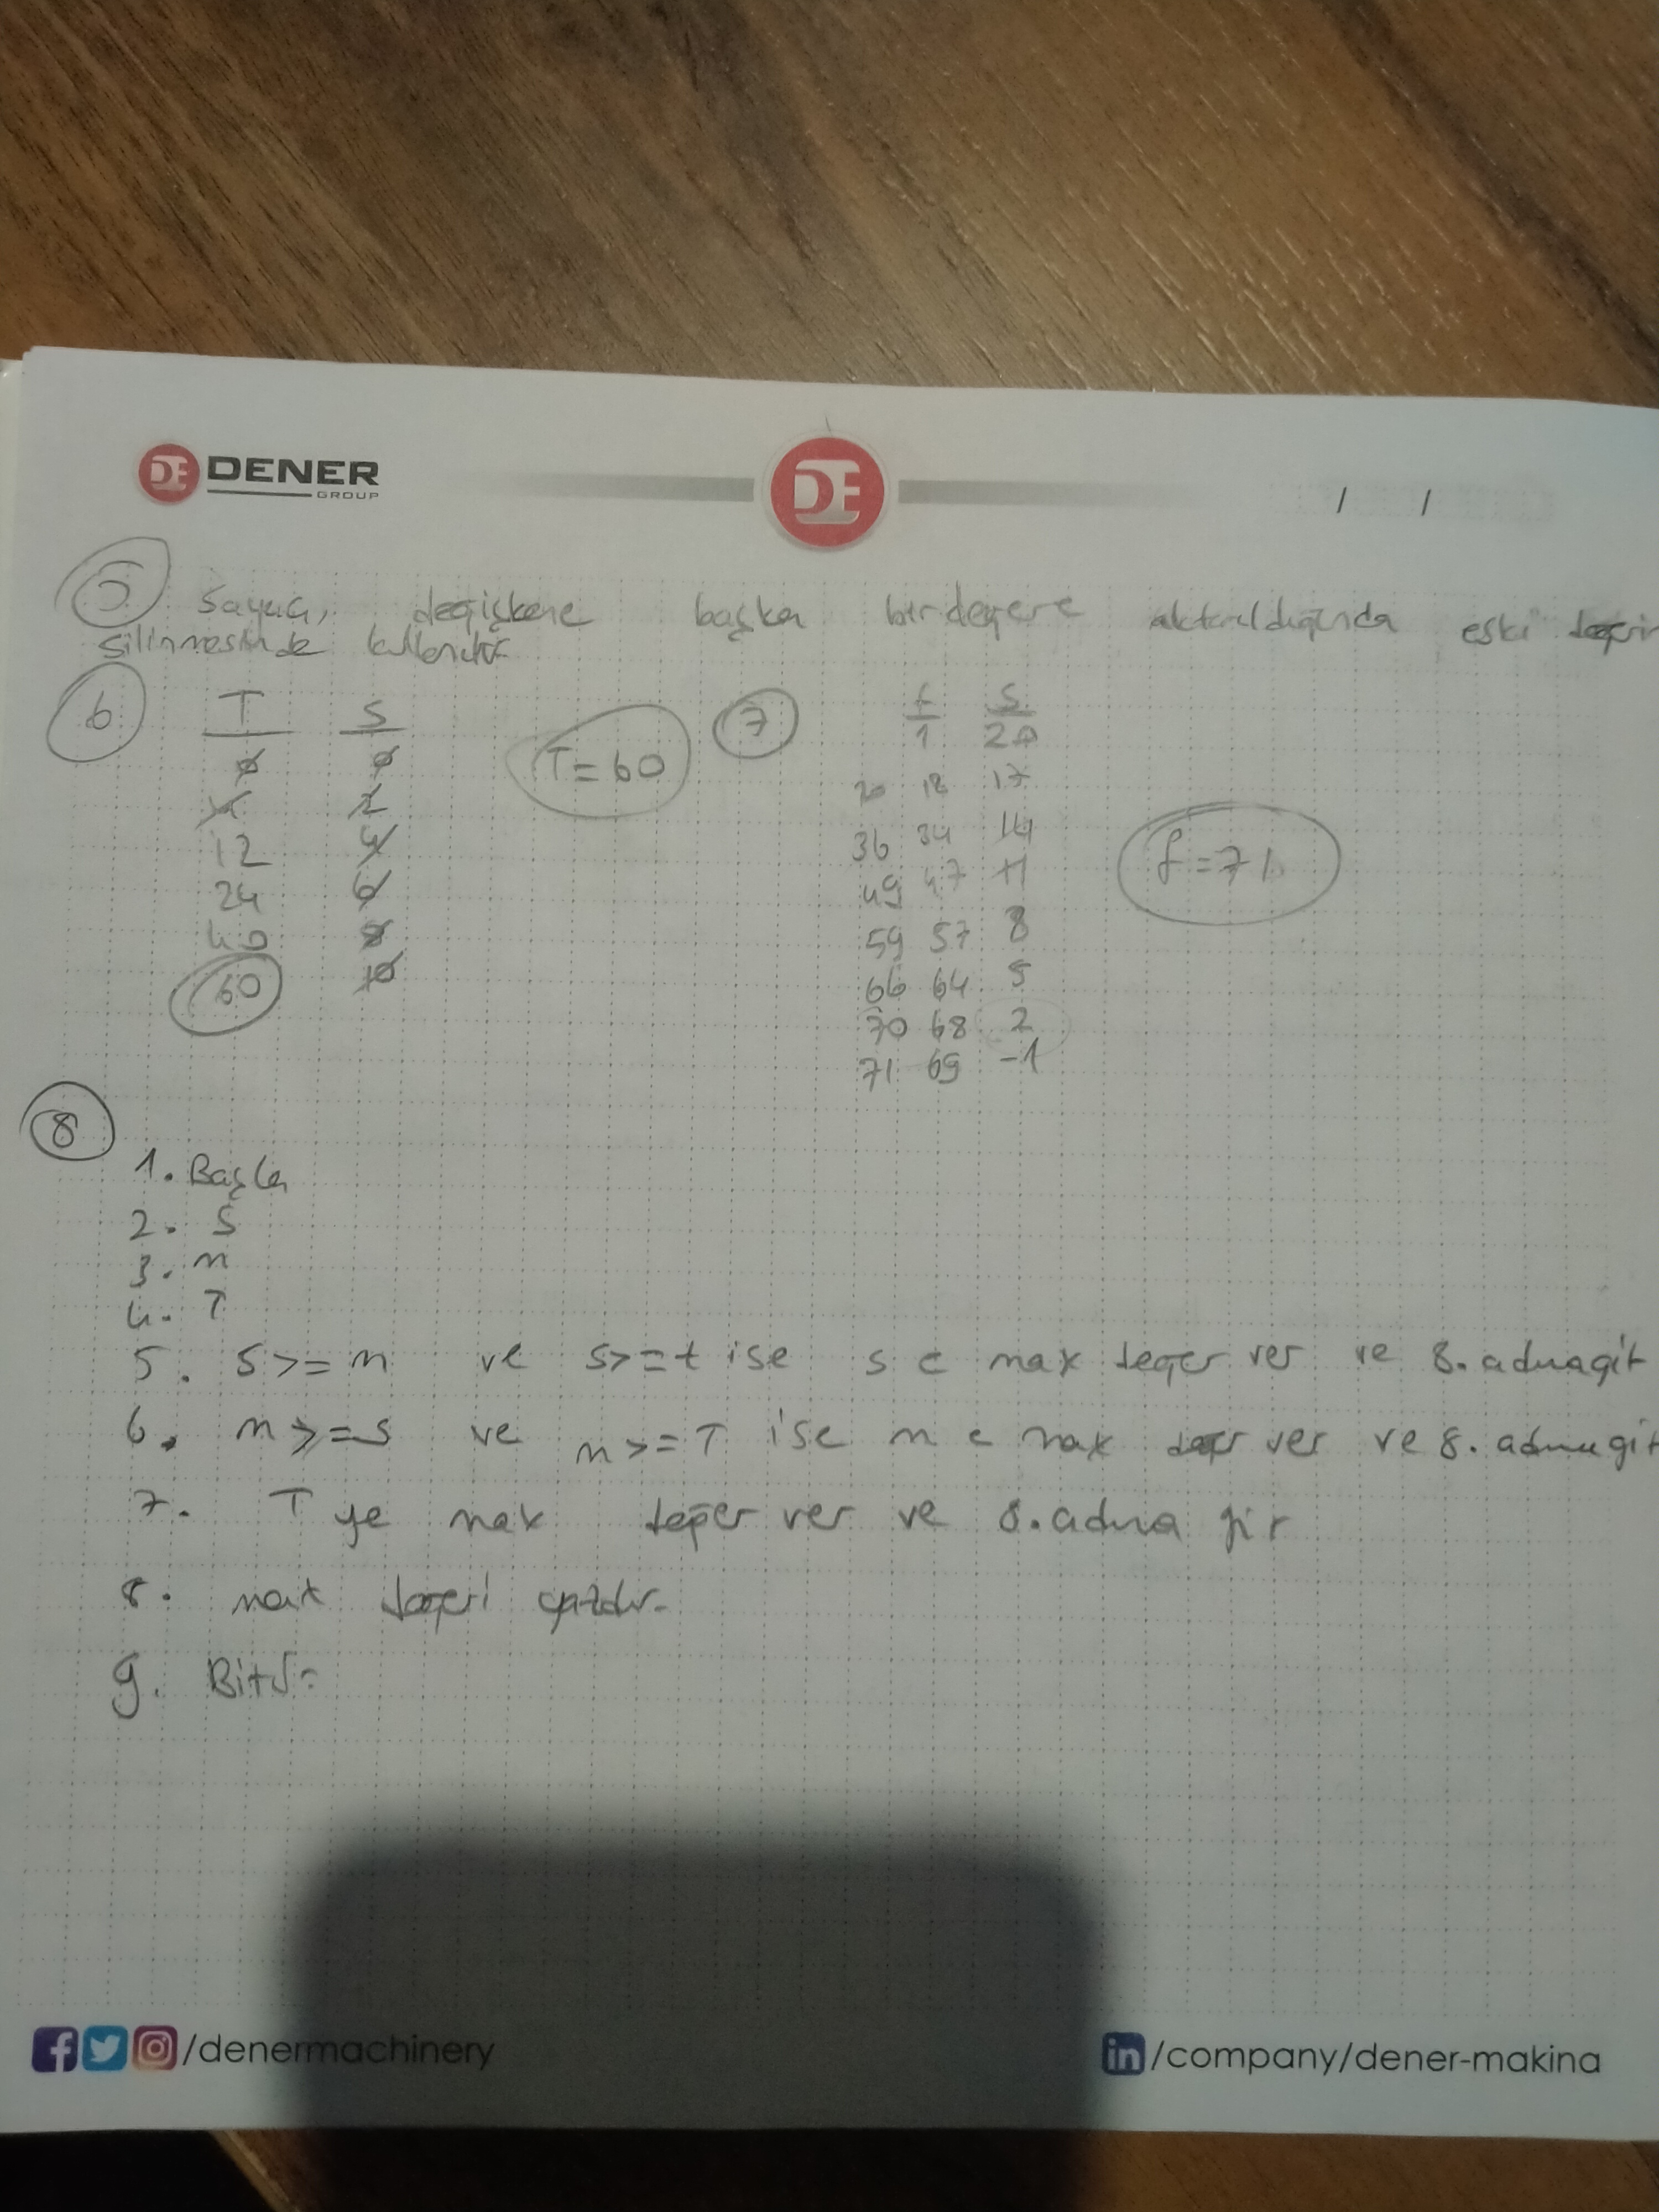 DE DENER
GROUP
DE
/ /
5 Sayacı, değişkene başka bir değere aktarıldığında eski değerin
silinmesinde kullanılır
6 T S
0 0
4 2
12 4
24 6
40 8
60 10
T=60
7 f S
1 20
20 18 17
36 34 14
49 47 11
59 57 8
66 64 5
70 68 2
71 69 -1
f=71
8
1. Başla
2. S
3. n
4. T
5. S>=n ve S>=t ise s e max değer ver ve 8. adıma git
6. n>=s ve n>=T ise n e max değer ver ve 8. adıma git
7. T ye max değer ver ve 8. adıma git
8. max değeri yazdır.
9. Bitir
/denermachinery
in /company/dener-makina